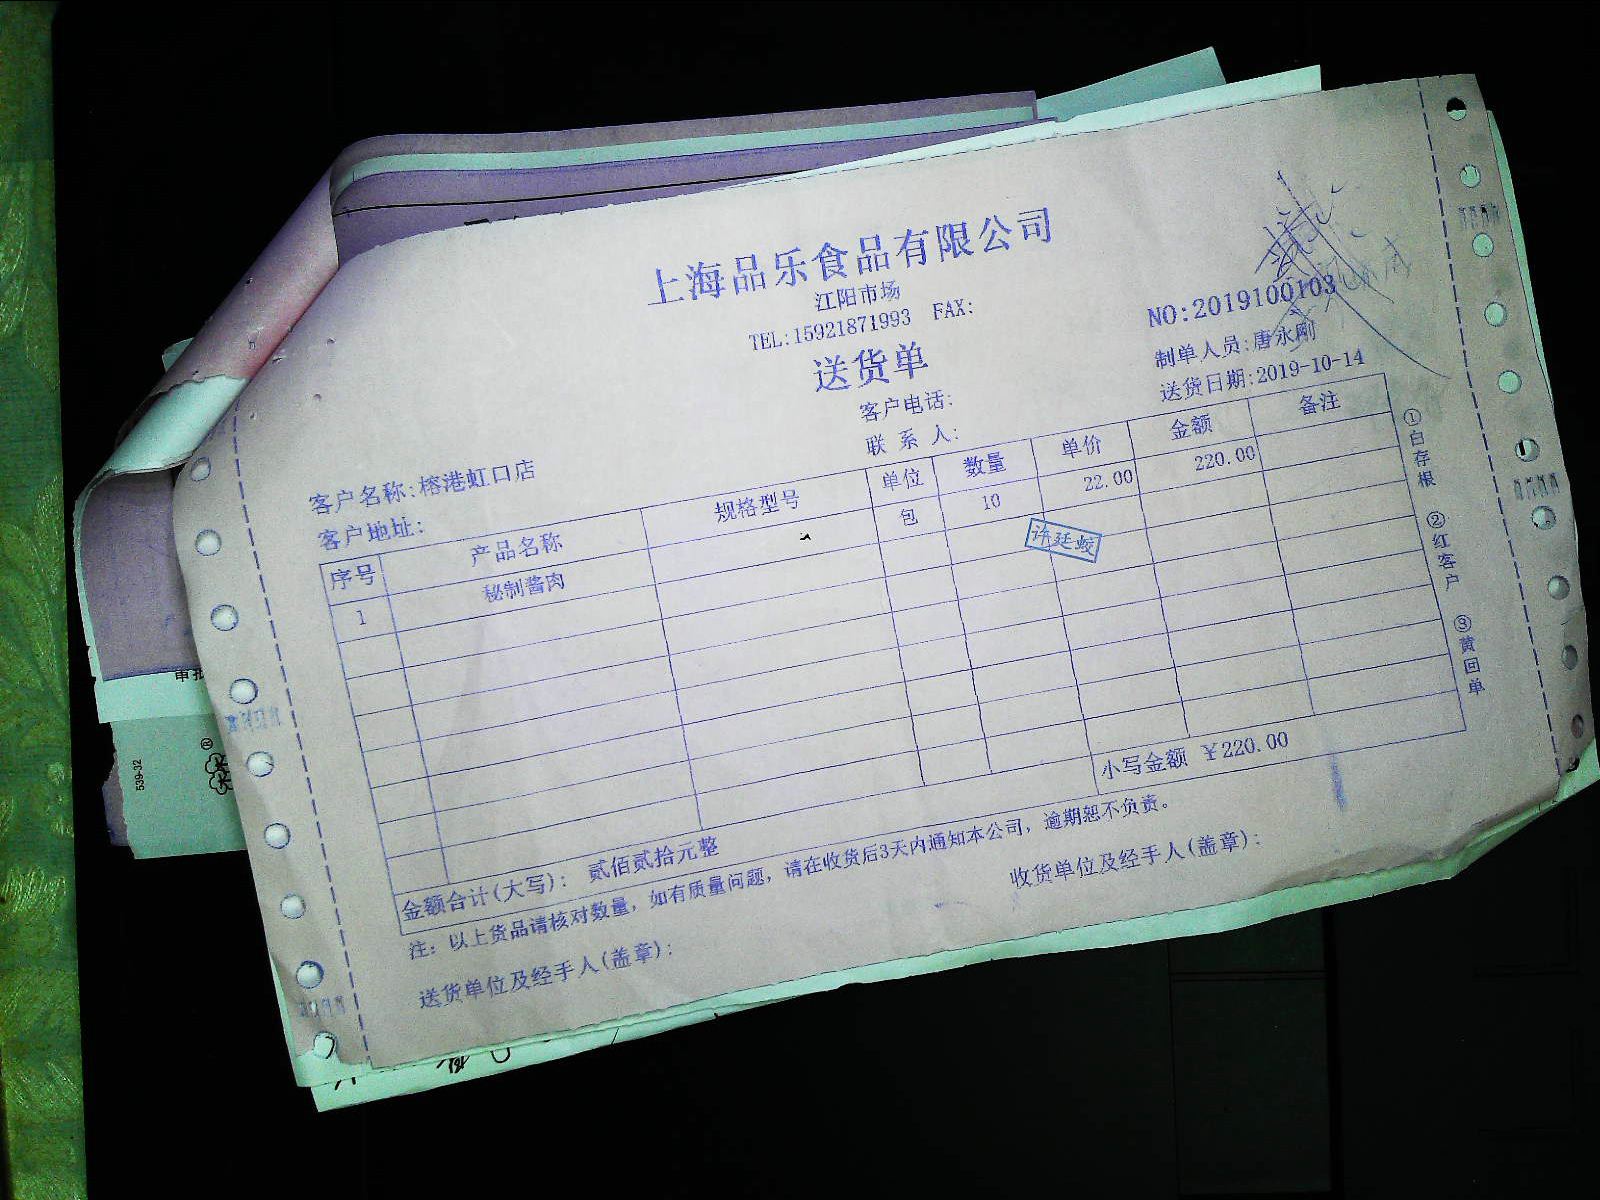 上海品乐食品有限公司
江阳市场
TEL:15921871993 FAX:
送货单
NO:2019100103
制单人员:唐永刚
送货日期:2019-10-14
客户电话:
联 系 人:
客户名称:榕港虹口店
客户地址:
序号 产品名称 规格型号 单位 数量 单价 金额 备注
1 秘制酱肉 包 10 22.00 220.00
许廷蛟
金额合计(大写): 贰佰贰拾元整 小写金额 ￥220.00
注: 以上货品请核对数量, 如有质量问题, 请在收货后3天内通知本公司, 逾期恕不负责。
送货单位及经手人(盖章): 收货单位及经手人(盖章):
①白存根 ②红客户 ③黄回单
539-32